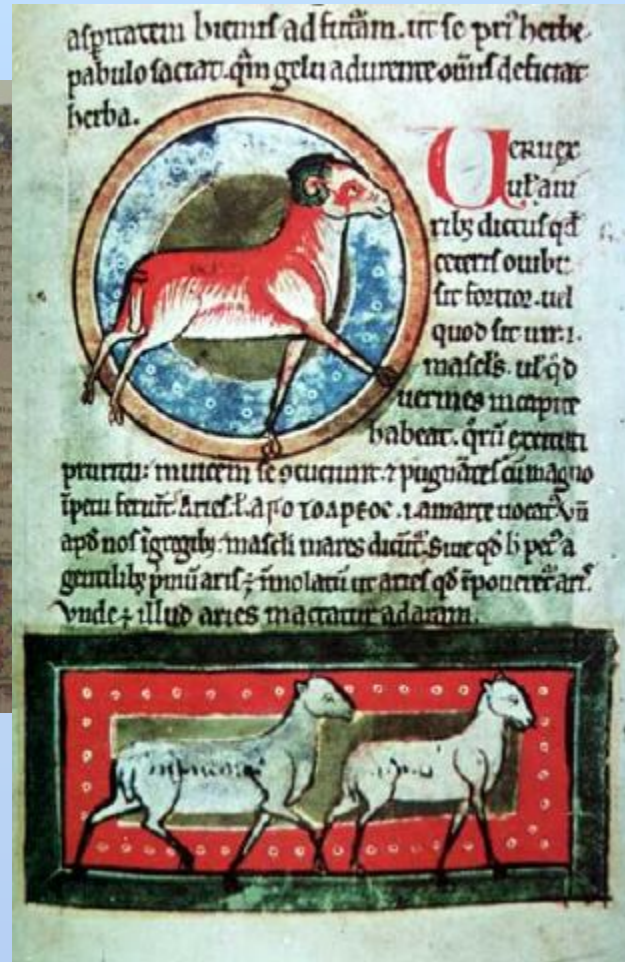 aspitatem hiemis ad futam. ut se pri' herbe
pabulo saciat. qm gelu adurente omis deficiat
herba.
Ueruex
ul' a ui
ribz dictus qd
ceteris ouibz
sit fortior. uel
quod sit uir .i.
mascls. ul' qd
uermes incapite
habeat. qru excitati
pruritu: inuicem se ɔcuciunt. ⁊ pugnates cu magno
ipetu feriut. Aries l' αρο το αρεος .i. amarte uocat' Vn
apd nos igregibz. mascli mares dicut'. Siue qd h pec' a
gentilibz pmu aris ÷ imolatu ut aries qd iponeret' ari.
Vnde ÷ illud aries mactatur adaram.